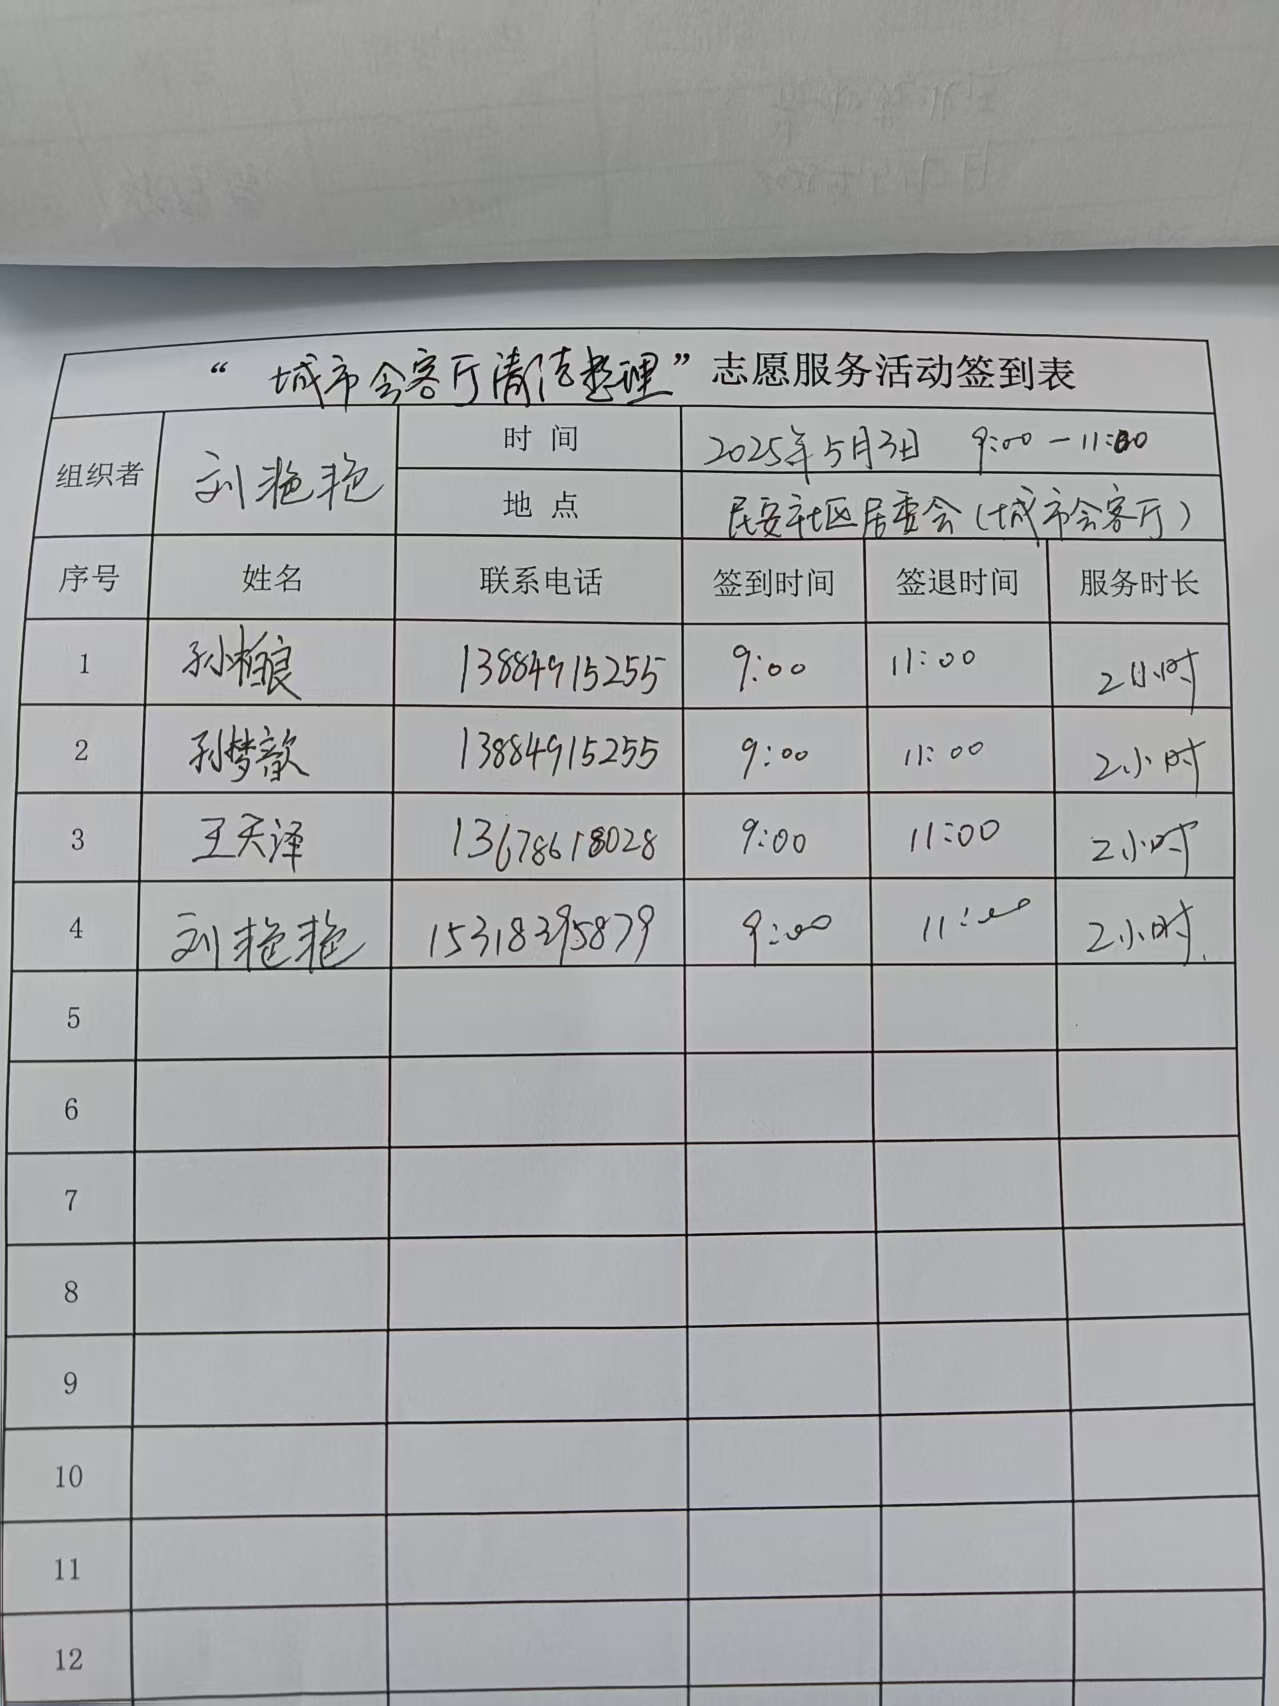 “城市会客厅清洁整理”志愿服务活动签到表
组织者 刘艳艳 时 间 2025年5月3日 9:00－11:00
地 点 民安社区居委会(城市会客厅)
序号 姓名 联系电话 签到时间 签退时间 服务时长
1 孙柏良 13884915255 9:00 11:00 2小时
2 孙梦歆 13884915255 9:00 11:00 2小时
3 王天泽 13678618028 9:00 11:00 2小时
4 刘艳艳 15318395879 9:00 11:00 2小时.
5
6
7
8
9
10
11
12